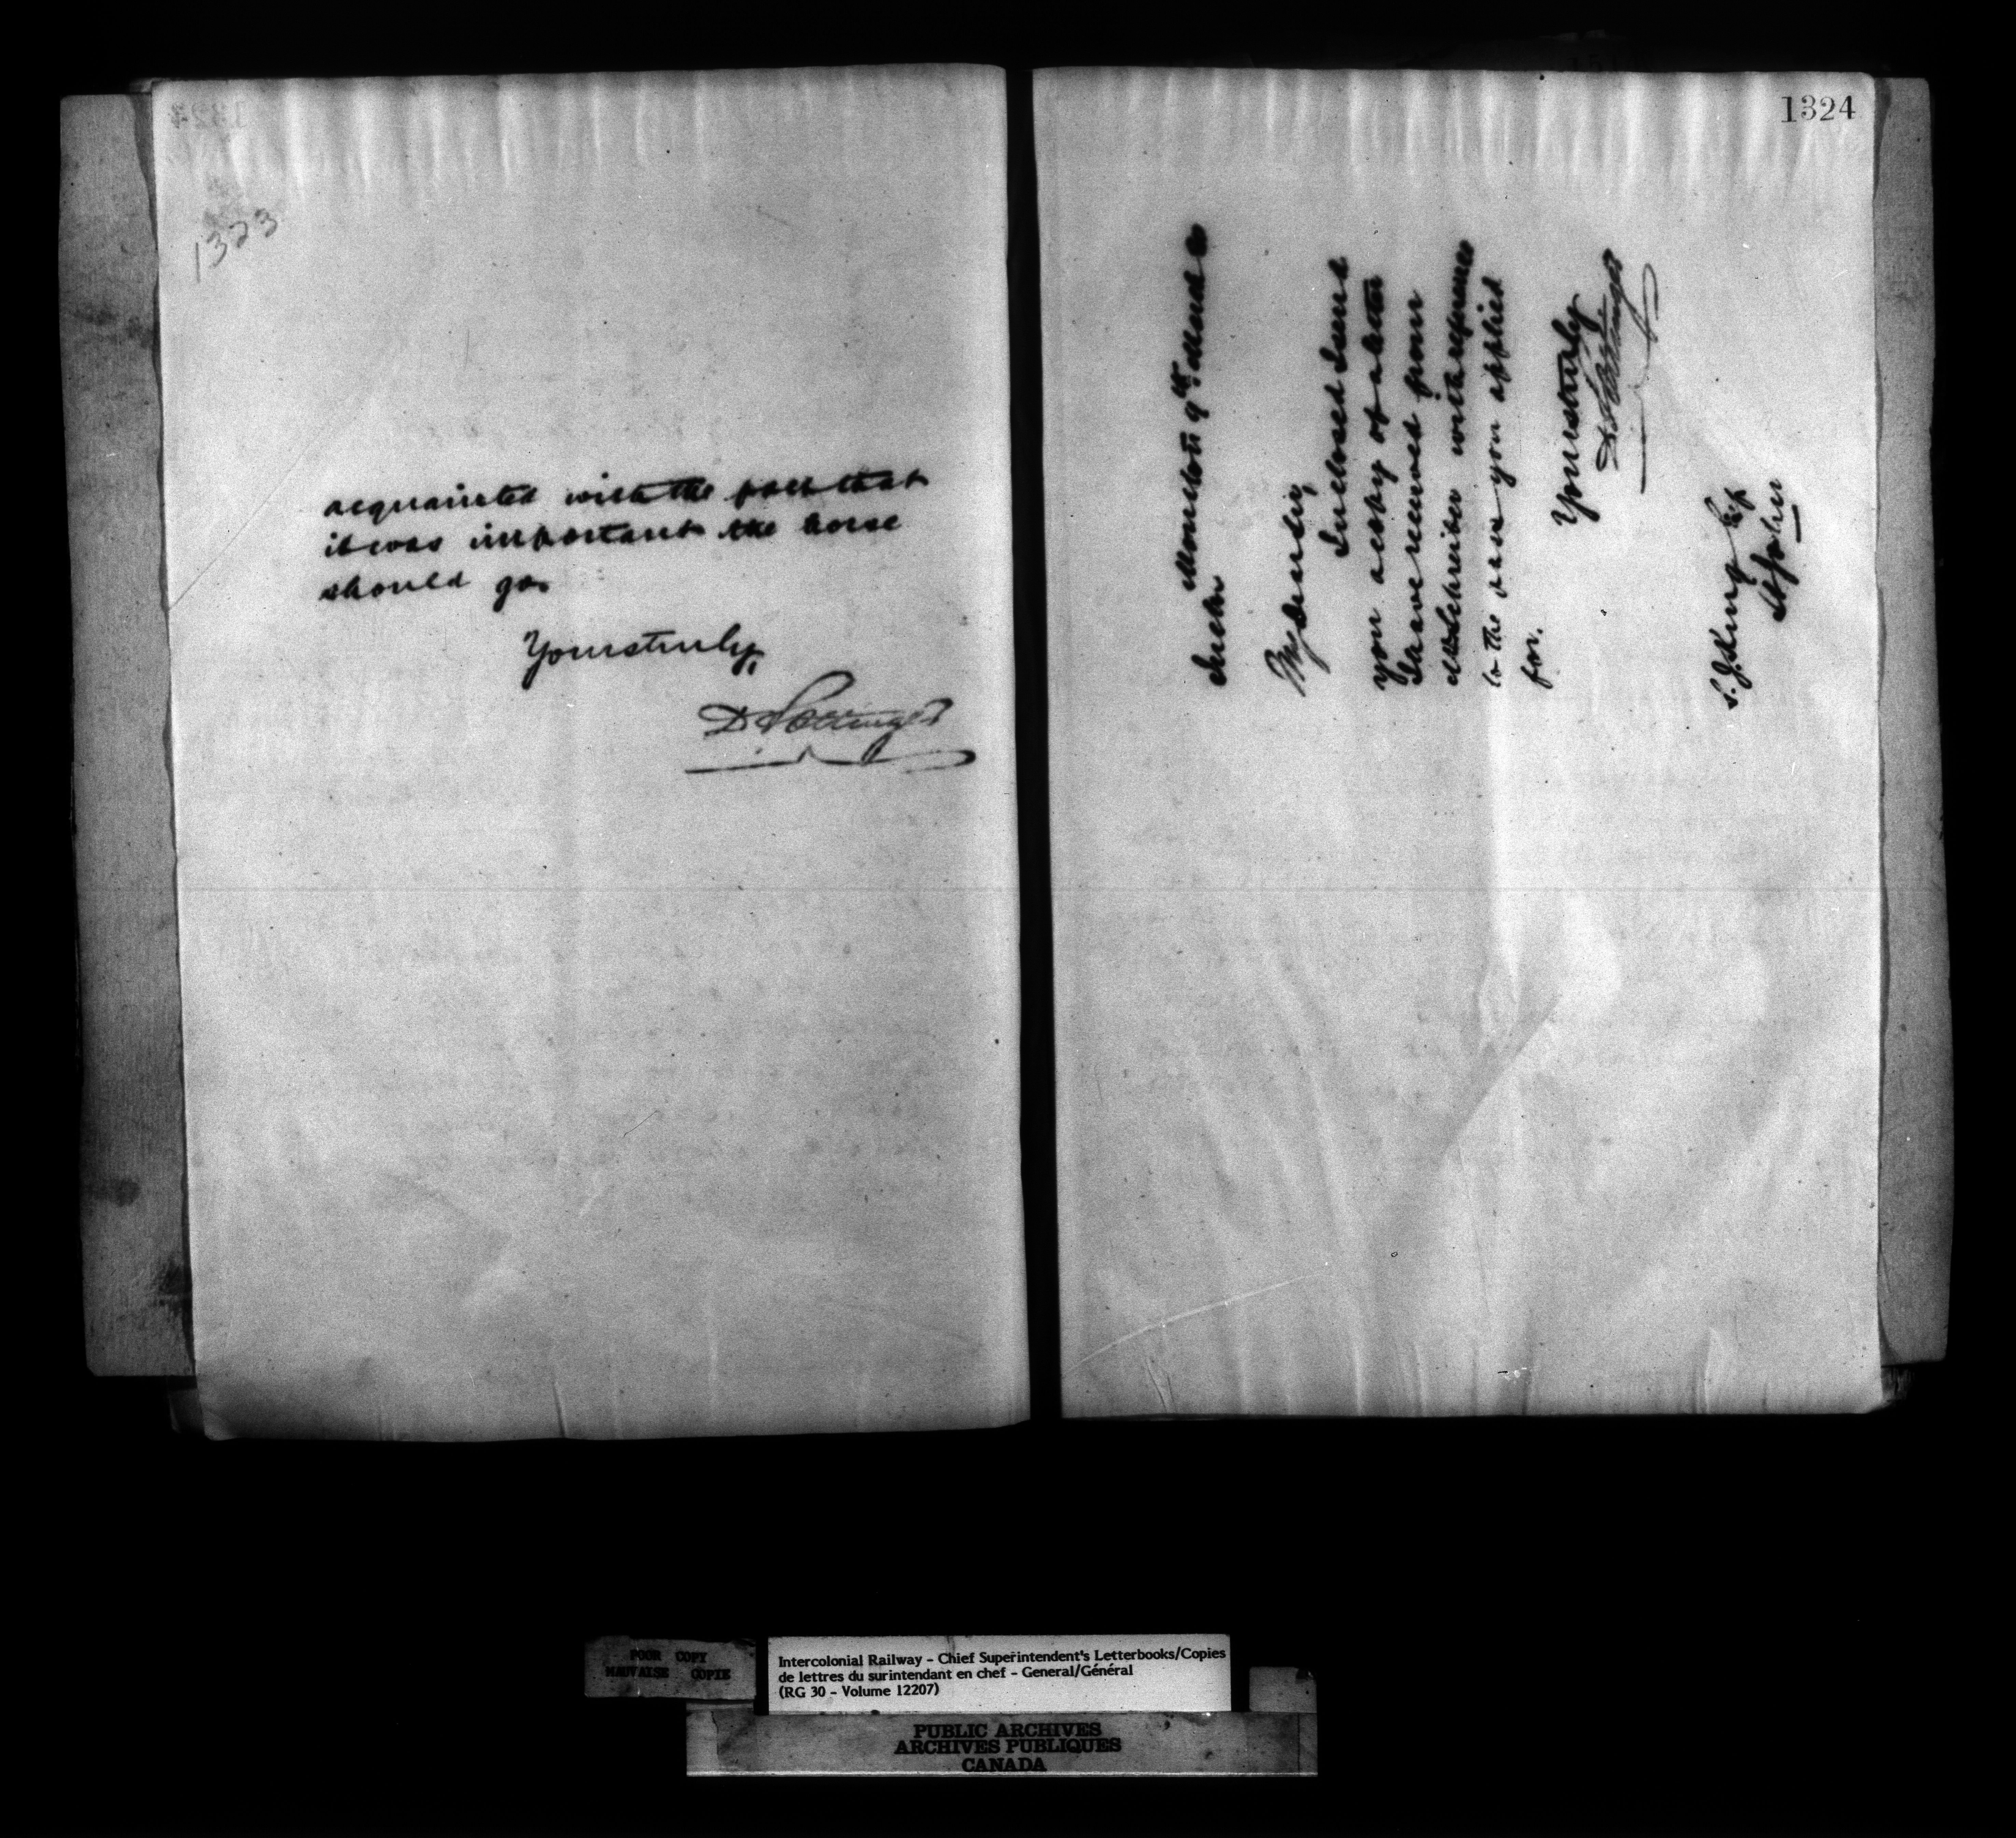 1323
acquainted with the fact that
it was important the horse
should go.
Yours truly,
D Pottinger
1324
Moncton 9th March
My dear Sir,
Inclosed I send
you a copy of a letter
I have received from
with reference
to the you applied
for.
Yours truly
D Pottinger
S. J. King Esq
St John
POOR COPY
MAUVAISE COPIE
Intercolonial Railway - Chief Superintendent's Letterbooks/Copies
de lettres du surintendant en chef - General/Général
(RG 30 - Volume 12207)
PUBLIC ARCHIVES
ARCHIVES PUBLIQUES
CANADA